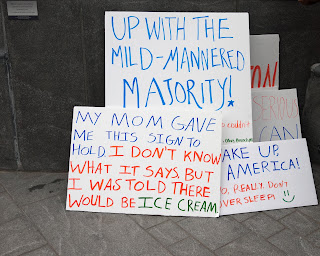 UP WITH THE
MILD-MANNERED
MAJORITY!
MY MOM GAVE
ME THIS SIGN TO
HOLD. I DON'T KNOW
WHAT IT SAYS, BUT
I WAS TOLD THERE
WOULD BE ICE CREAM.
SERIOUS
CAN
AKE UP,
AMERICA!
O, REALLY. DON'T
OVERSLEEP!